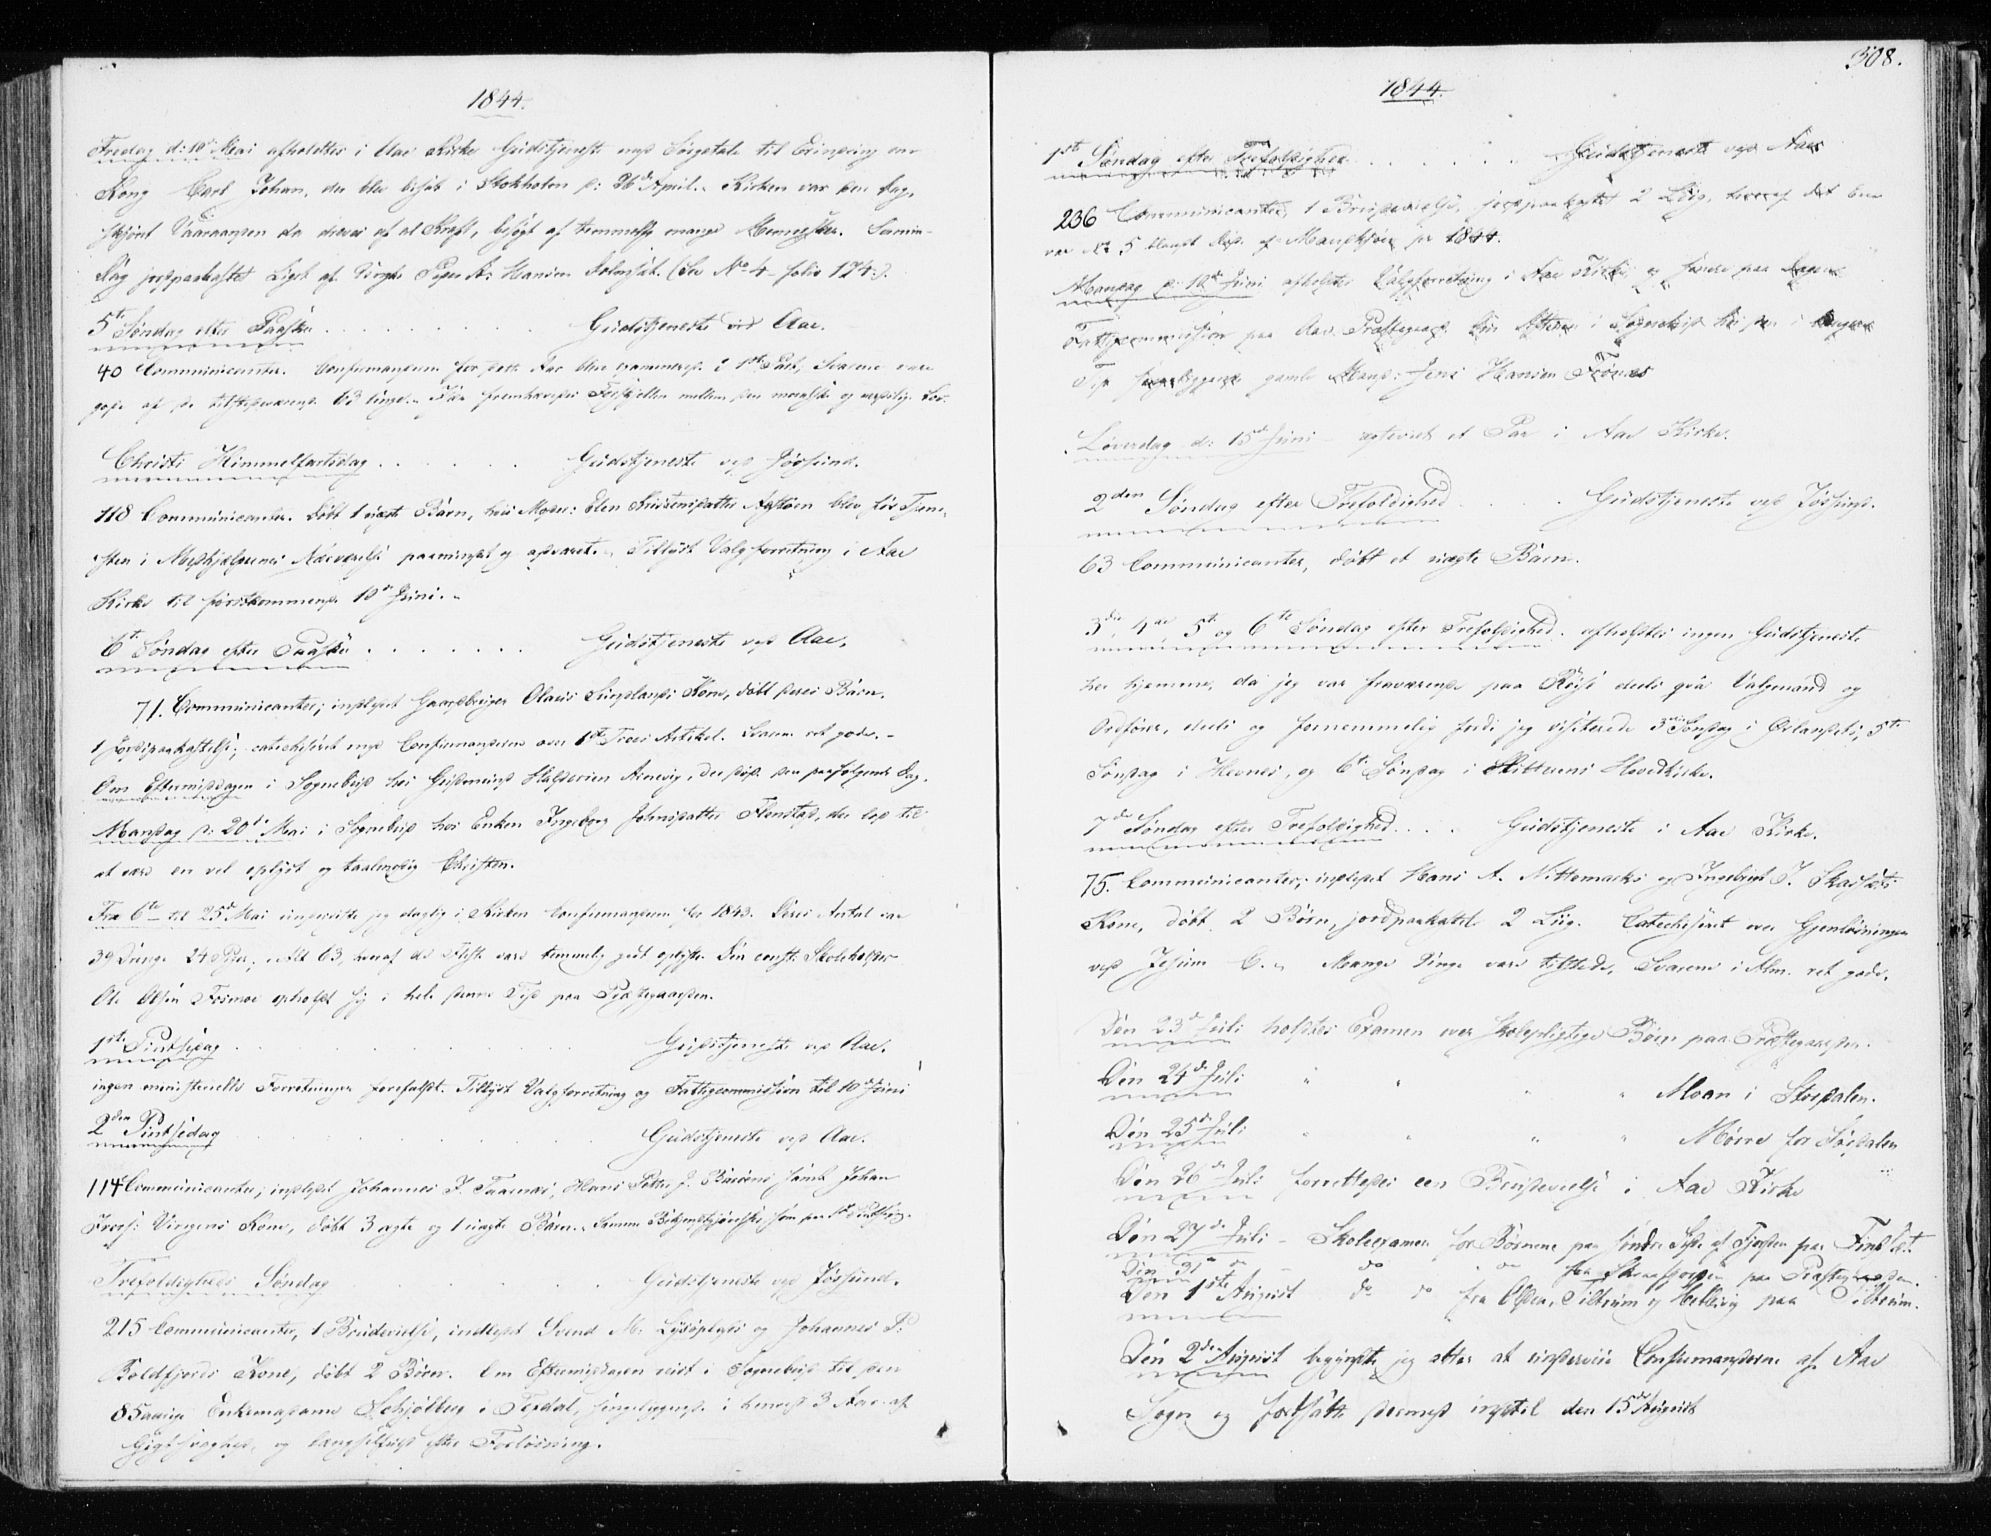 1844.
Fredag d: 10de Mai afholdtes i Aae Kirke Gudstjeneste med Sørgetale til Erindring om
Kong Carl Johan, der blev bisat i Stokholm d: 26de April. Kirken var den Dag,
skjønt Vaaraanden da dreves af al Kraft, besøgt af temmelig mange Mennesker. Samme
Dag jordpaakastet Liget af Pigen A: Hansen (See No 4 folio 174.)
5te Søndag efter Paaske . . . . . . . . . . Gudstjeneste ved Aae.
40 Communicanter. Confirmanderne for dette Aar bleve examinerede i 1ste Part, Svarene vare
gode af de tilstedeværende 63 Unge. Især fremhævedes Forskjellen mellem den mosaiske og
Christi Himmelfartsdag . . . . . . Gudstjeneste ved Jøssund.
118 Communicanter. Døbt 1 uægte Barn, hvis Moder: Elen blev før Tjene-
sten i Medhjælpernes Nærværelse paamindet og advaret. Tillyst Valgforretning i Aae
Kirke til førstkommende 10de Juni.
6te Søndag efter Paaske . . . . . . . Gudstjeneste ved Aae.
71. Communicanter; indledet Gaardbruger Olaus Kone, døbt deres Barn,
1 Jordpaakastelse; catechiseret med Confirmanderne over 1ste Troes Artikel. Svarene ret gode.
Om Eftermiddagen i Sognebud hos der døde den paafølgende Dag.
Mandag d: 20de Mai i Sognebud hos Enken Ingeborg Johnsdatter der lod til
at være en vel oplyst og taalmodig Christen.
Fra 6te til 25de Mai underviste jeg daglig i Kirken Confirmanderne for Deres Antal var
39 Drenge 24 Piger, Alt 63, hvoraf de Fleste vare temmelig godt oplyste. Den const: Skoleholder
Ole Olsen opholdt sig i hele denne Tid paa Præstegaarden.
1ste Pintsedag . . . . . . . . Gudstjeneste ved Aae.
ingen ministerielle Forretninger forefaldt. Tillyst Valgforretning og Fattigcommission til 10de Juni
2den Pintsedag . . . . . . . . Gudstjeneste ved Aae.
114 Communicanter; indledet Johannes J. Hans Peter J. samt Johan
Kone, døbt 3 ægte og 1 uægte Barn. Samme som paa 1ste Pintsedag.
Trefoldigheds Søndag . . . . . . . Gudstjeneste ved Jøssund.
215 Communicanter, 1 Brudevielse, indledet Svend M. og Johannes P:
Boldfjords Kone, døbt 2 Børn. Om Eftermiddagen reist i Sognebud til den
85 aarige Enkemadame Schjølberg i Terdal, sengeliggende i henved 3 Aar af
Gigtsvaghed, og længselfuld efter Forløsning.
508.
1844.
1ste Søndag efter Trefoldighed . . . . . . Gudstjeneste ved Aae
236 Communicanter, 1 Brudevielse, jordpaakastet 2 Liig, hvoraf det ene
var No 5 blandt døde af Mandkjøn for 1844.
Mandag d: 10de Juni afholdtes Valgforretning i Aae Kirke, og senere paa Dagen
Fattigcommission paa Aae Præstegaard. i Sognebud hos den i
Tid gamle Mand: Jens Hansen
Løverdag d: 15de Juni – et Par i Aae Kirke.
2den Søndag efter Trefoldighed . . . . Gudstjeneste ved Jøssund.
63 Communicanter, døbt et uægte Barn.
3die, 4de, 5te og 6te Søndag efter Trefoldighed. afholdtes ingen Gudstjeneste
her hjemme, da jeg var fraværende paa Reise deels qva Valgmand og
Ordfører, deels og fornemmelig fordi jeg visiterede 3die Søndag i Ørlandet, 5te
Søndag i Hevnes, og 6te Søndag i Hitterens Hovedkirke.
7de Søndag efter Trefoldighed . . . . Gudstjeneste i Aae Kirke.
75. Communicanter; indledet Hans A. og Ingebrigt J.
Kone, døbt 2 Børn, jordpaakastet 2 Liig. Catechiseret over Gjenløsningen
ved Jesum C. Mange Unge vare tilstede, Svarene i Alm. ret gode.
Den 23de Juli holdtes Examen over skolepligtige Børn paa Præstegaarden.
Den 24de Juli " " " " Moan i Stordalen.
Den 25de Juli " " " " Mørre for Sørdalen
Den 26de Juli forrettedes een Brudevielse i Aae Kirke
Den 27de Juli – Skoleexamen for Børnene paa søndre Side af Fjorden paa
Den 31te do – do do fra paa Præstegaarden.
Den 1ste August do do fra Olden, Tiltrum og paa Tiltrum.
Den 2den August begyndte jeg atter at undervise Confirmanderne af Aae
Sogn og fortsatte dermed indtil den 15de August